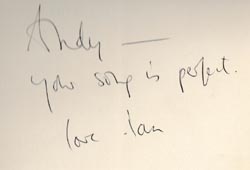 Andy —
your song is perfect.
love Ian